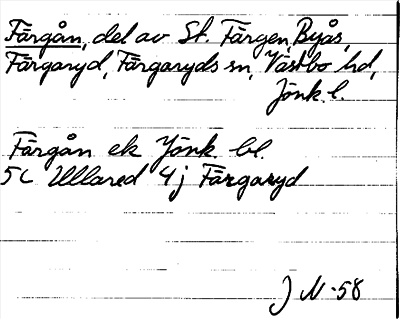 Färgån, del av St. Färgen, Byås,
Färgaryd, Färgaryds sn, Västbo hd,
Jönk. l.
Färgån ek Jönk. bl.
5C Ullared 4j Färgaryd
J N -58